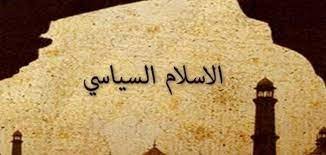 الاسلام السياسي